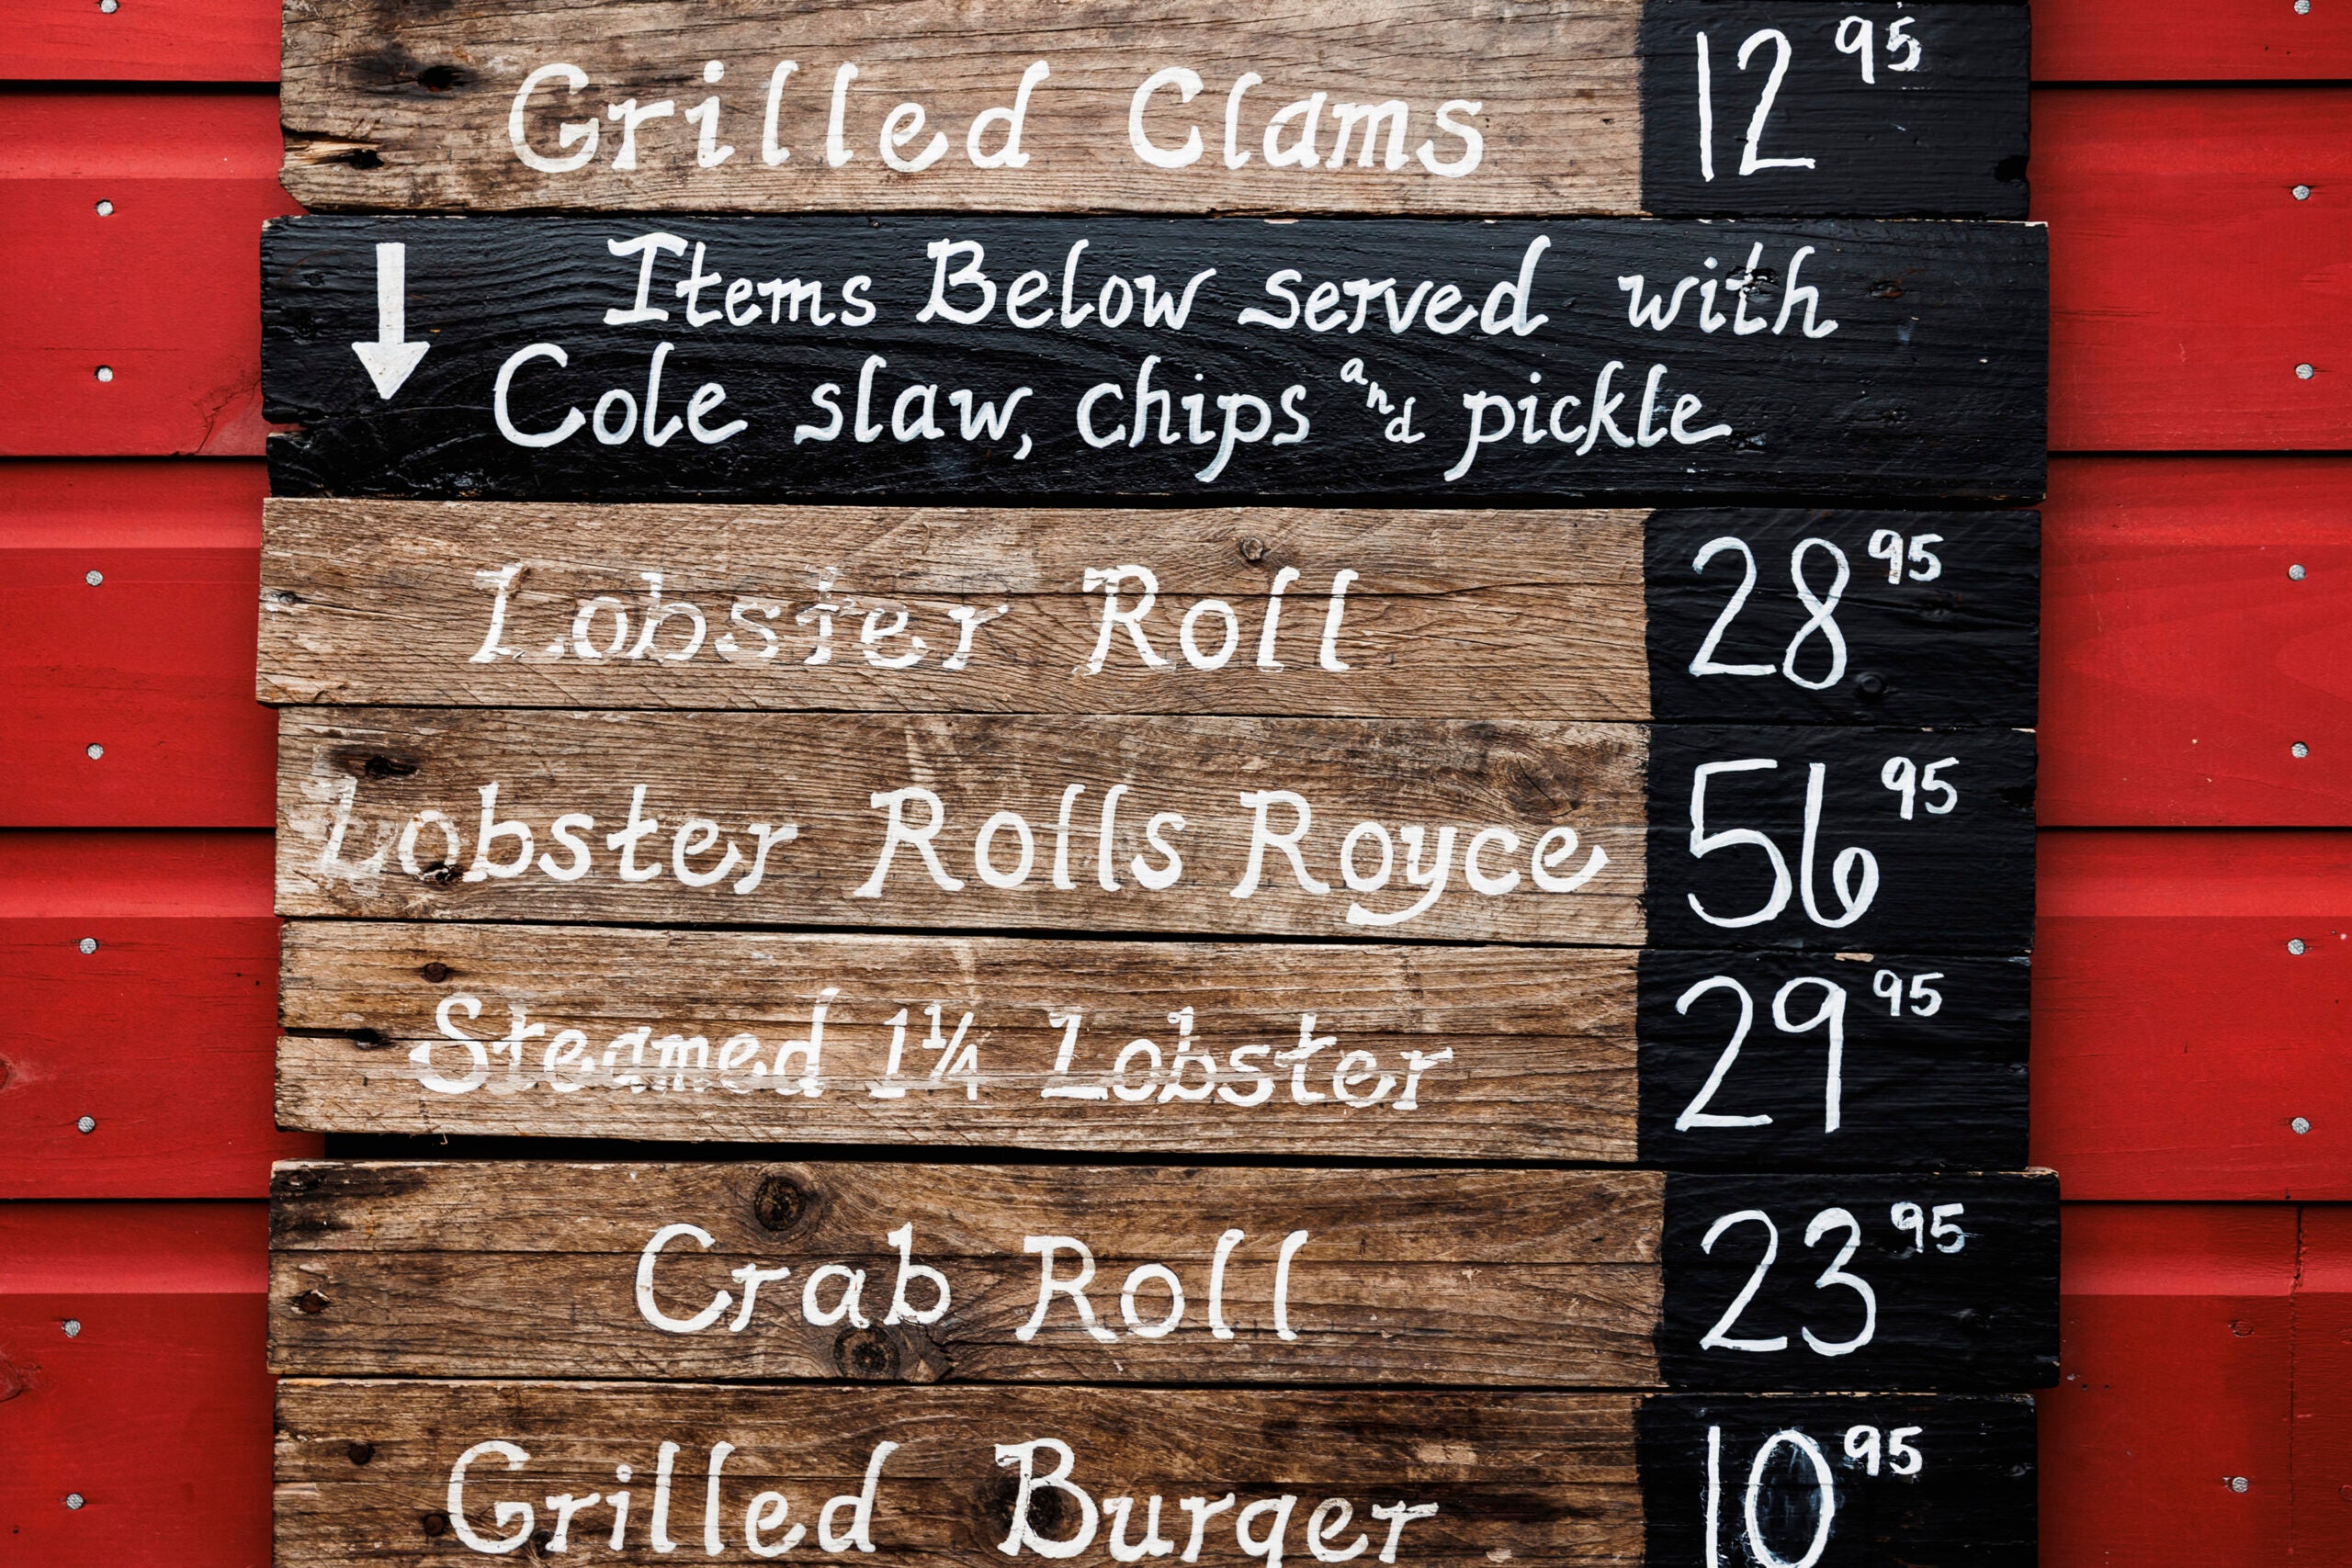 Grilled Clams 12 95
Items Below served with
Cole slaw, chips and pickle
Lobster Roll 28 95
Lobster Rolls Royce 56 95
Steamed 1 1/4 Lobster 29 95
Crab Roll 23 95
Grilled Burger 10 95